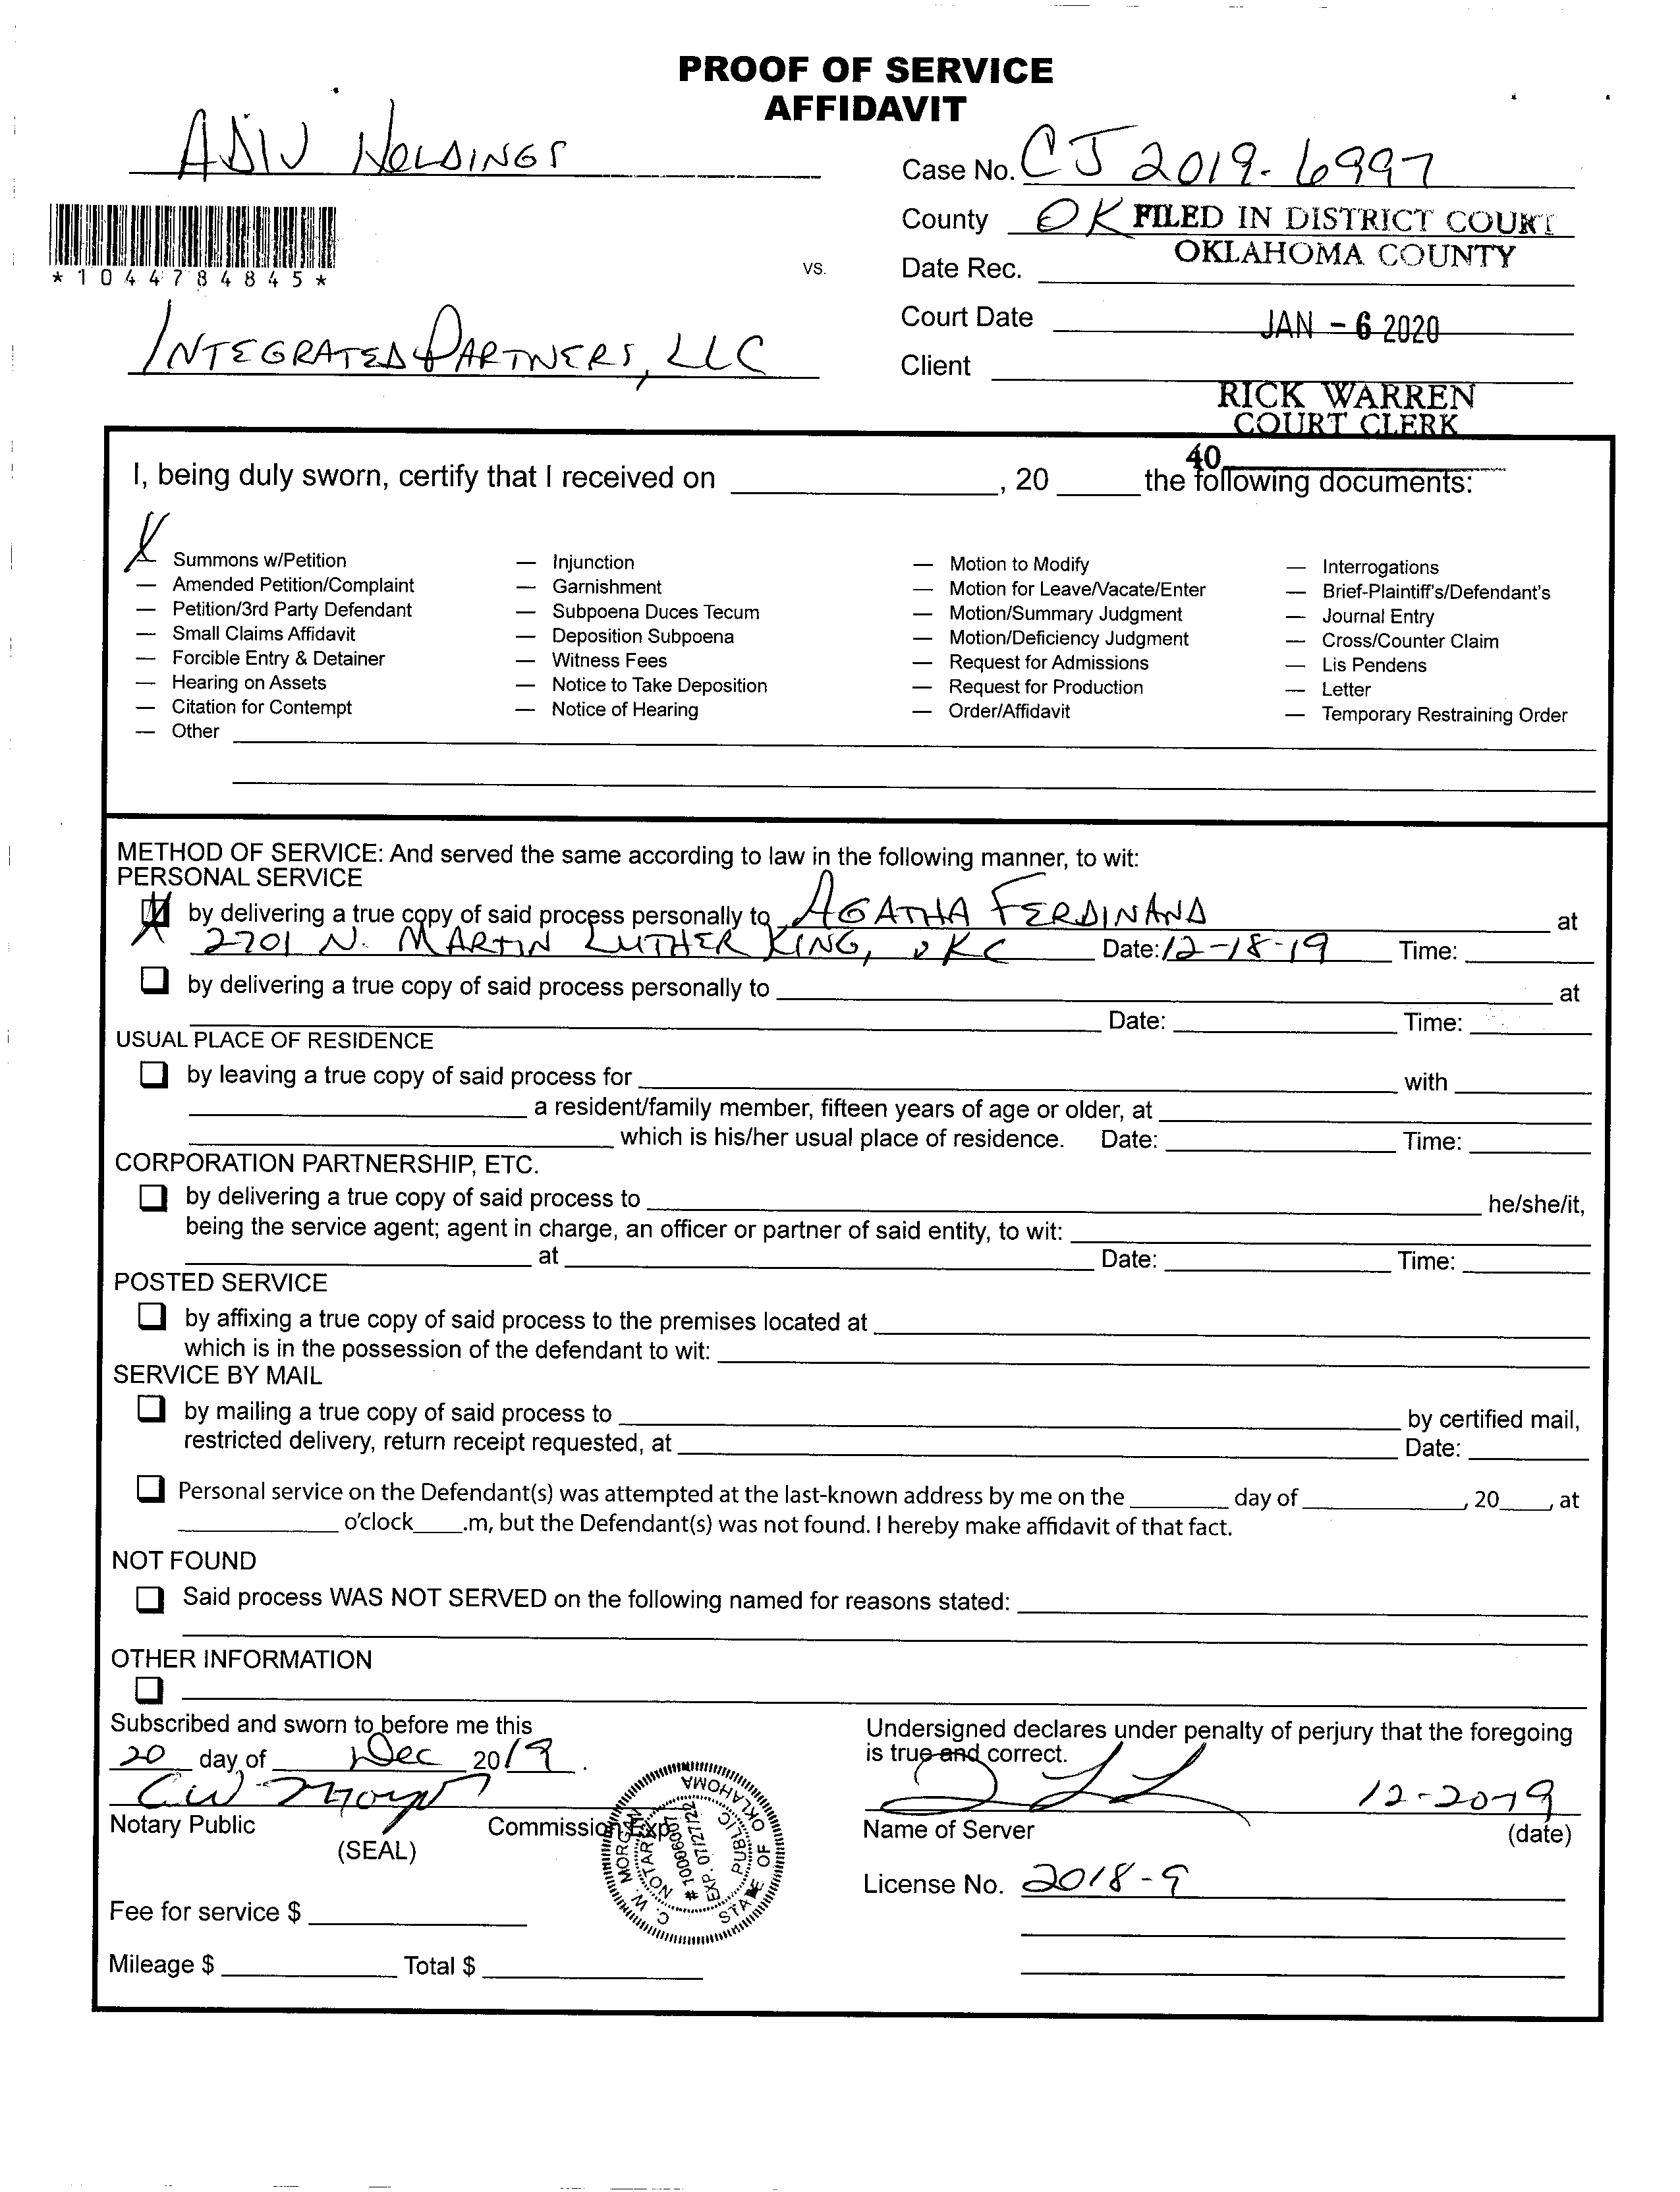 PROOF OF SERVICE
AFFIDAVIT
ADIV HOLDINGS
Case No. CJ 2019-6997
County OK FILED IN DISTRICT COURT
OKLAHOMA COUNTY
*1044784845*
vs.
Date Rec.
Court Date JAN - 6 2020
INTEGRATED PARTNERS, LLC
Client
RICK WARREN
COURT CLERK
40
I, being duly sworn, certify that I received on , 20 the following documents:
X Summons w/Petition
Amended Petition/Complaint
Petition/3rd Party Defendant
Small Claims Affidavit
Forcible Entry & Detainer
Hearing on Assets
Citation for Contempt
Other
Injunction
Garnishment
Subpoena Duces Tecum
Deposition Subpoena
Witness Fees
Notice to Take Deposition
Notice of Hearing
Motion to Modify
Motion for Leave/Vacate/Enter
Motion/Summary Judgment
Motion/Deficiency Judgment
Request for Admissions
Request for Production
Order/Affidavit
Interrogations
Brief-Plaintiff's/Defendant's
Journal Entry
Cross/Counter Claim
Lis Pendens
Letter
Temporary Restraining Order
METHOD OF SERVICE: And served the same according to law in the following manner, to wit:
PERSONAL SERVICE
by delivering a true copy of said process personally to AGATHA FERDINAND at
2701 N. MARTIN LUTHER KING, OKC Date: 12-18-19 Time:
by delivering a true copy of said process personally to at
Date: Time:
USUAL PLACE OF RESIDENCE
by leaving a true copy of said process for with
a resident/family member, fifteen years of age or older, at
which is his/her usual place of residence. Date: Time:
CORPORATION PARTNERSHIP, ETC.
by delivering a true copy of said process to he/she/it,
being the service agent; agent in charge, an officer or partner of said entity, to wit:
at Date: Time:
POSTED SERVICE
by affixing a true copy of said process to the premises located at
which is in the possession of the defendant to wit:
SERVICE BY MAIL
by mailing a true copy of said process to by certified mail,
restricted delivery, return receipt requested, at Date:
Personal service on the Defendant(s) was attempted at the last-known address by me on the day of , 20 , at
o'clock .m, but the Defendant(s) was not found. I hereby make affidavit of that fact.
NOT FOUND
Said process WAS NOT SERVED on the following named for reasons stated:
OTHER INFORMATION
Subscribed and sworn to before me this
20 day of Dec 2019.
CW Morgan
Notary Public Commission Exp.
(SEAL)
C. W. MORGAN
NOTARY PUBLIC
STATE OF OKLAHOMA
# 10006007
EXP. 07/27/22
Fee for service $
Mileage $ Total $
Undersigned declares under penalty of perjury that the foregoing
is true and correct.
12-20-19
Name of Server (date)
License No. 2018-9